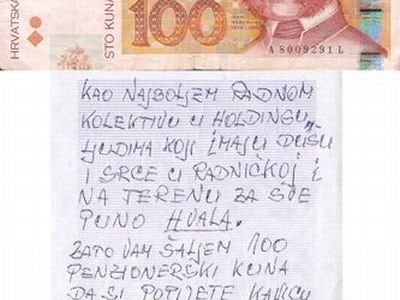 HRVATSKA
STO KUNA
100
A8009291L
KAO NAJBOLJEM RADNOM
KOLEKTIVU U HOLDINGU,,
LJUDIMA KOJI IMAJU DUŠU
I SRCE U RADNIČKOJ I
NA TERENU ZA SVE
PUNO HVALA.
ZATO VAM ŠALJEM 100
PENZIONERSKI KUNA
DA SI POPIJETE KAVICU